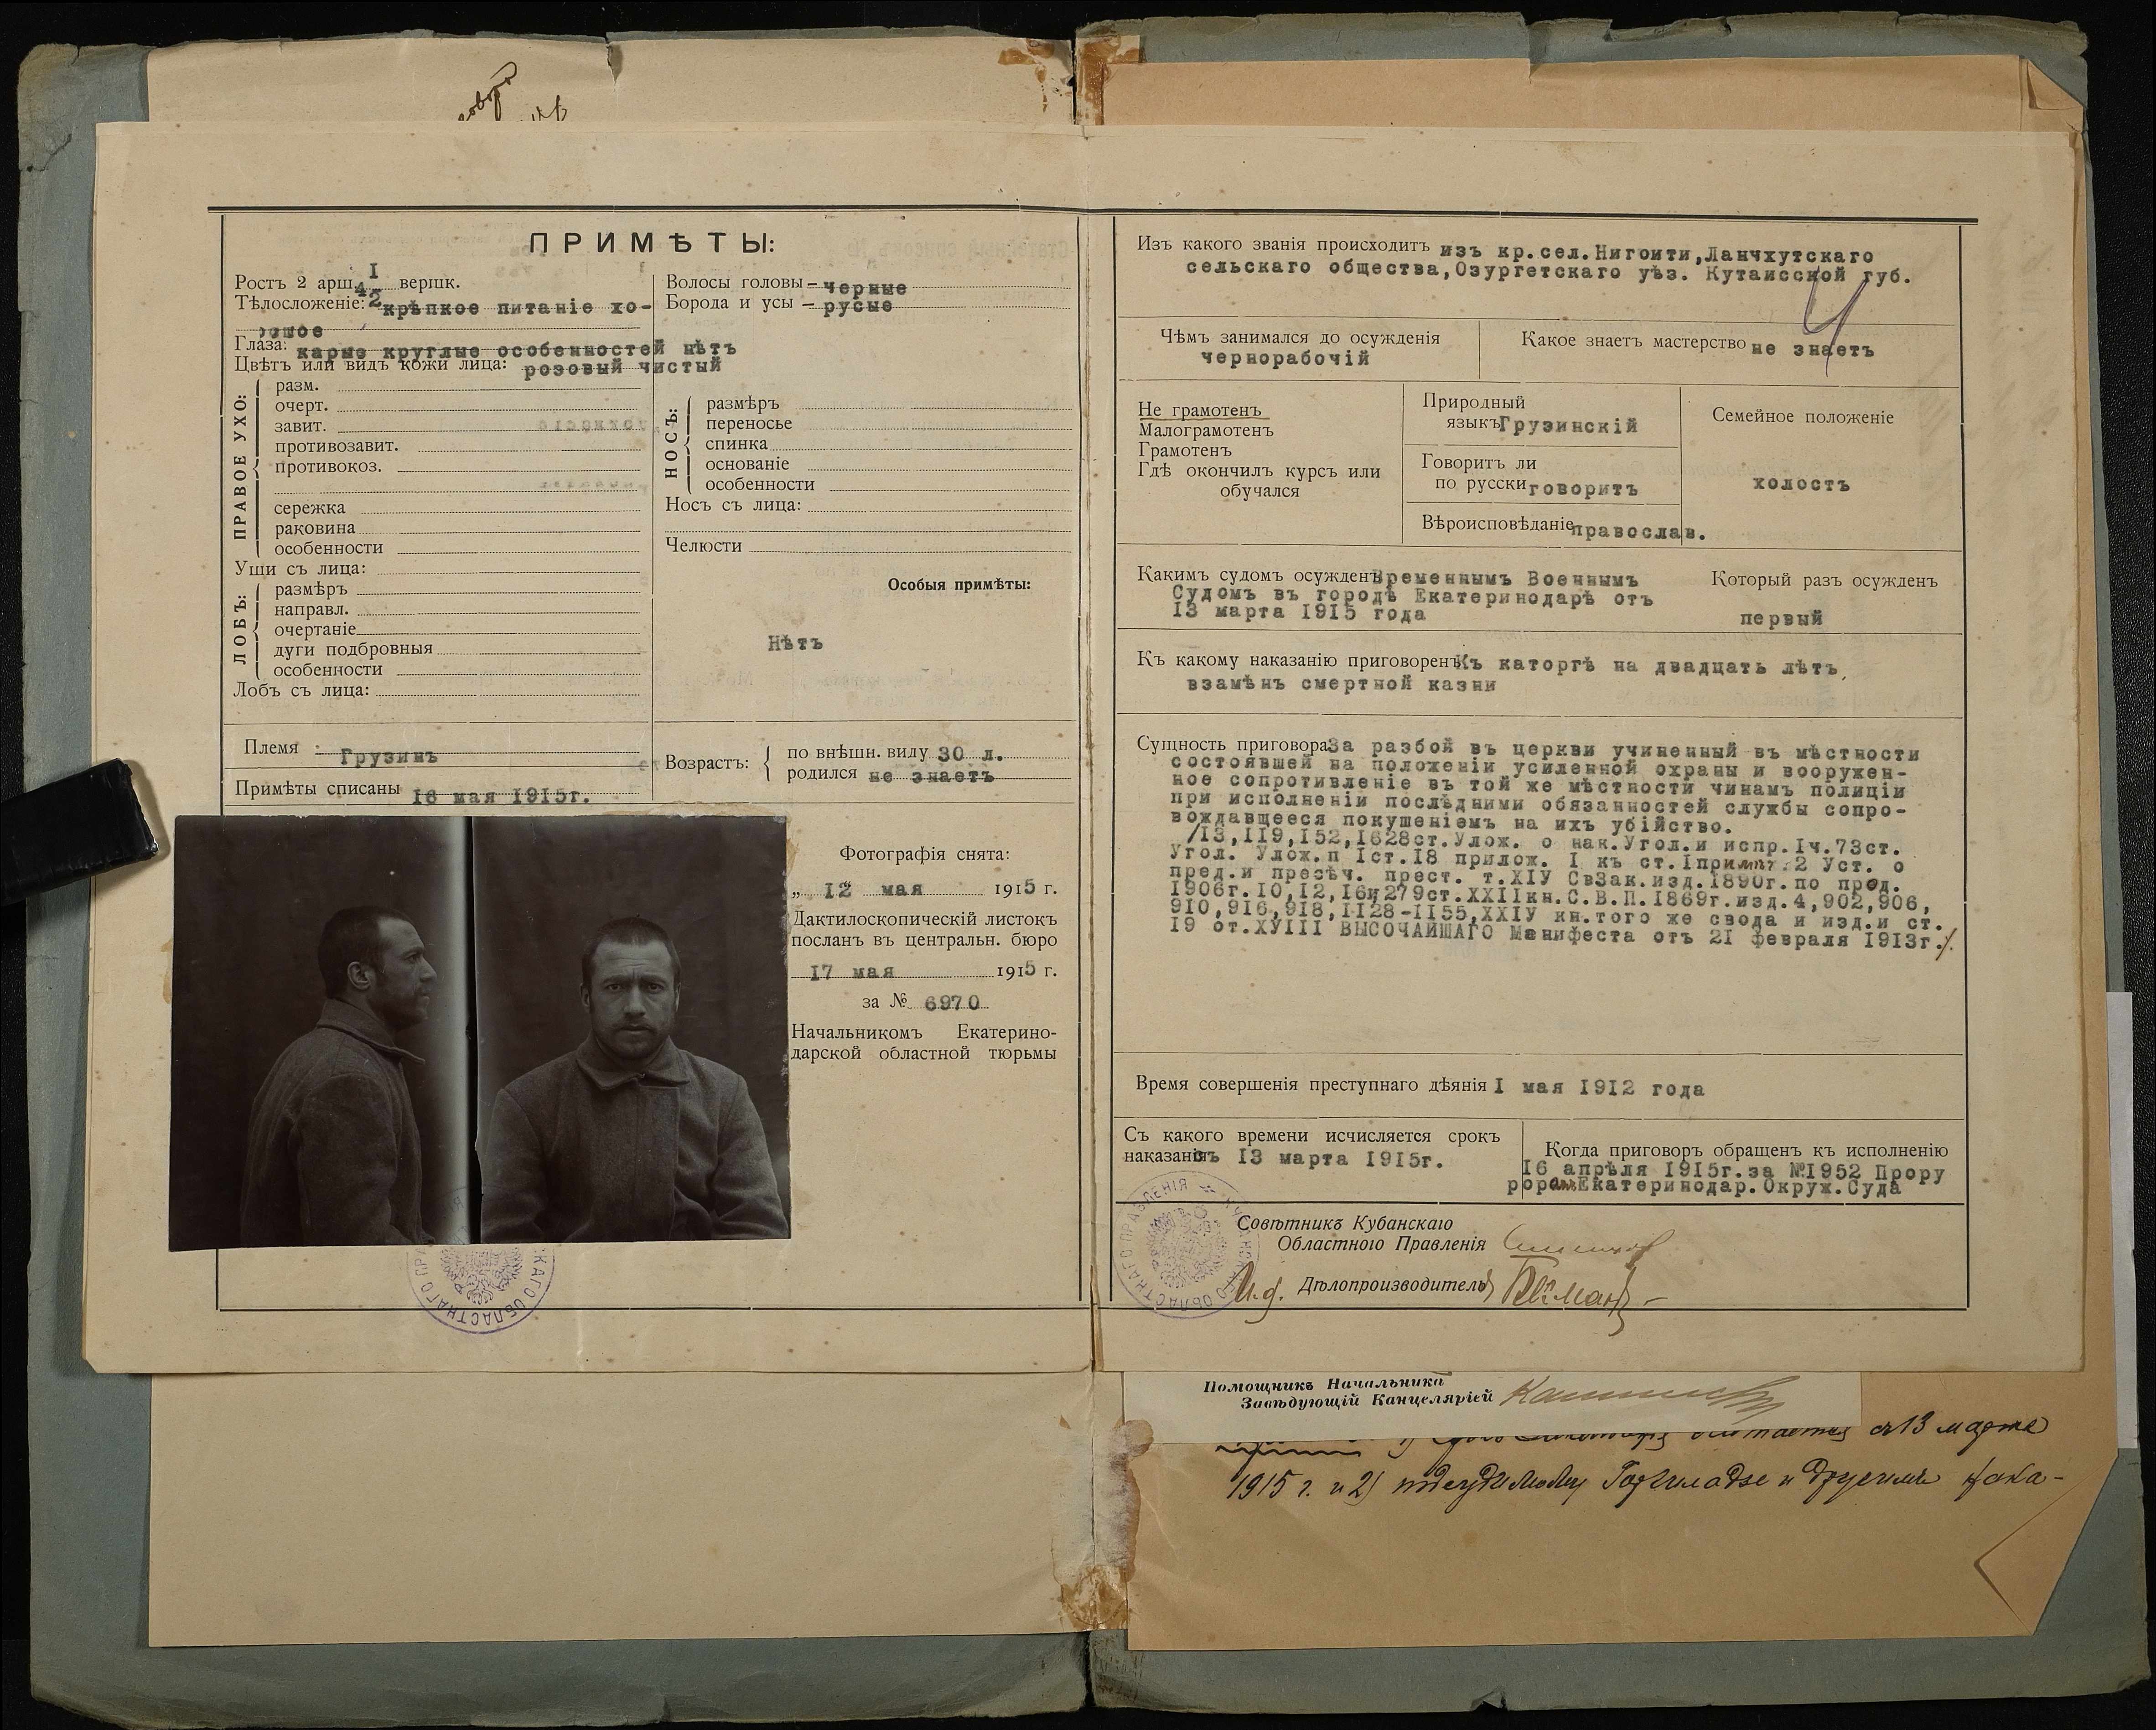 ПРИМѢТЫ:
Ростъ 2 арш. 4 1/2 вершк.
Тѣлосложеніе: крѣпкое питаніе хо-
рошое
Глаза: карые круглые особенностей нѣтъ
Цвѣтъ или видъ кожи лица: розовый чистый
Волосы головы – черные
Борода и усы – русые
ПРАВОЕ УХО:
разм.
очерт.
завит.
противозавит.
противокоз.
сережка
раковина
особенности
Уши съ лица:
ЛОБЪ:
размѣръ
направл.
очертаніе
дуги подбровныя
особенности
Лобъ съ лица:
НОСЪ:
размѣръ
переносье
спинка
основаніе
особенности
Носъ съ лица:
Челюсти
Особыя примѣты:
Нѣтъ
Племя Грузинъ
Примѣты списаны 16 мая 1915г.
Возрастъ:
по внѣшн. виду 30 л.
родился не знаетъ
Фотографія снята:
„ 12 мая 1915 г.
Дактилоскопическій листокъ
посланъ въ центральн. бюро
17 мая 1915 г.
за № 6970
Начальникомъ Екатерино-
дарской областной тюрьмы
Изъ какого званія происходитъ изъ кр.сел.Нигоити,Ланчхутскаго
сельскаго общества,Озургетскаго уѣз. Кутаисской губ.
Чѣмъ занимался до осужденія
чернорабочій
Какое знаетъ мастерство не знаетъ
Не грамотенъ
Малограмотенъ
Грамотенъ
Гдѣ окончилъ курсъ или
обучался
Природный
языкъ Грузинскій
Говоритъ ли
по русски говоритъ
Вѣроисповѣданіе православ.
Семейное положеніе
холостъ
Какимъ судомъ осужденъ Временнымъ Военнымъ
Судомъ въ городѣ Екатеринодарѣ отъ
13 марта 1915 года
Который разъ осужденъ
первый
Къ какому наказанію приговоренъ Къ каторгѣ на двадцать лѣтъ,
взамѣнъ смертной казни
Сущность приговора За разбой въ церкви учиненный въ мѣстности
состоявшей на положеніи усиленной охраны и вооружен-
ное сопротивленіе въ той же мѣстности чинамъ полиціи
при исполненіи послѣдними обязанностей службы сопро-
вождавщееся покушеніемъ на ихъ убійство.
/13,119,152,1628ст.Улож. о нак.Угол.и испр.Iч.73ст.
Угол. Улож.п Iст.18 прилож. I къ ст.Iпримѣч.2 Уст. о
пред.и пресѣч. прест. т.XIУ СвЗак.изд.1890г.по прод.
1906г.10,12,16и279ст.XXIIкн.С.В.П.1869г.изд.4,902,906,
910,916,918,1128-1155,XXIУ кн.того же свода и изд.и ст.
19 от.ХУIII ВЫСОЧАЙШАГО Манифеста отъ 21 февраля 1913г./.
Время совершенія преступнаго дѣянія I мая 1912 года
Съ какого времени исчисляется срокъ
наказанія съ 13 марта 1915г.
Когда приговоръ обращенъ къ исполненію
16 апрѣля 1915г.за №1952 Прору
рорамъ Екатеринодар.Окруж.Суда
Совѣтникъ Кубанскаго
Областного Правленія
И.д. Дѣлопроизводитель
Помощникъ Начальника
Завѣдующій Канцеляріей
считается съ 13 марта
1915 г. и 2) подсудимому и другимъ нака-